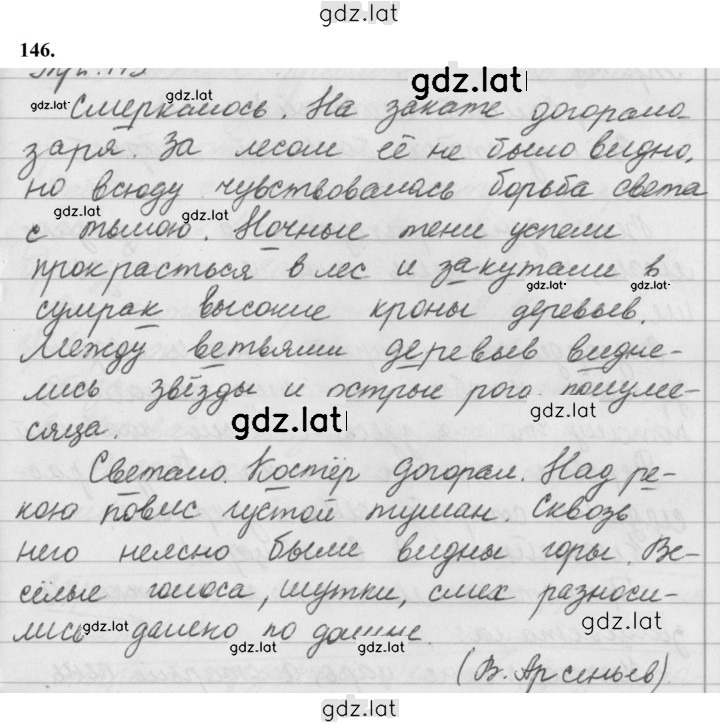 gdz.lat
146.
gdz.lat
gdz.lat
gdz.lat Смеркалось. На закате догорала
заря. За лесом её не было видно,
но всюду чувствовалась борьба света
gdz.lat
с тьмою. Ночные тени успели
прокрасться в лес и закутали в
gdz.lat gdz.lat
сумрак высокие кроны деревьев.
Между ветвями деревьев видне-
лись звёзды и острые рога полуме-
gdz.lat gdz.lat
сяца.
Светало. Костёр догорал. Над ре-
кою повис густой туман. Сквозь
него неясно были видны горы. Ве-
сёлые голоса, шутки, смех разноси-
лись gdz.lat далеко по долине.
gdz.lat gdz.lat
(В. Арсеньев)
gdz.lat